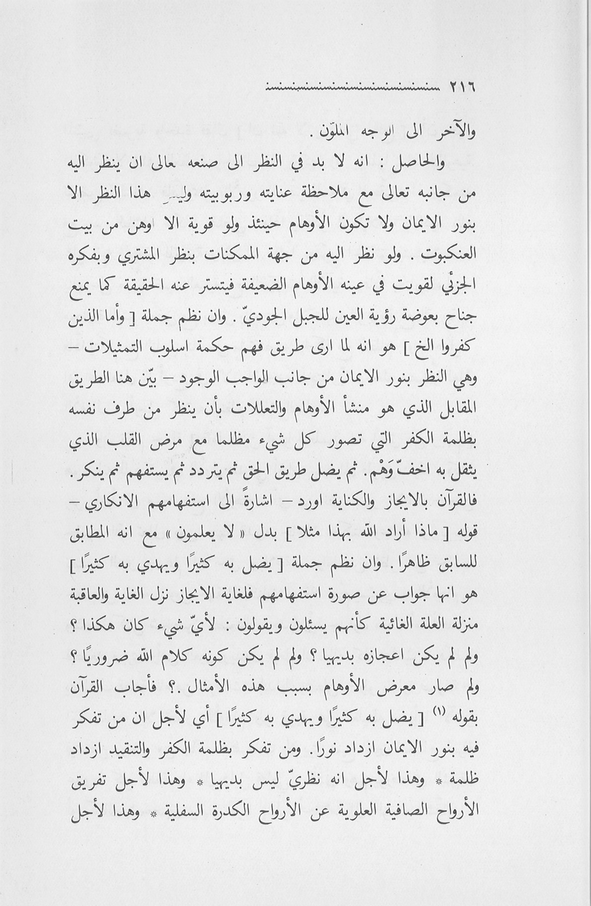 ٢١٦
والآخر الى الوجه الملوَن .
والحاصل : انه لا بد في النظر الى صنعه تعالى ان ينظر اليه
من جانبه تعالى مع ملاحظة عنايته وربوبيته وليس هذا النظر الا
بنور الايمان ولا تكون الأوهام حينئذ ولو قوية الا اوهن من بيت
العنكبوت . ولو نظر اليه من جهة الممكنات بنظر المشتري وبفكره
الجزئي لقويت في عينه الأوهام الضعيفة فيتستر عنه الحقيقة كما يمنع
جناح بعوضة رؤية العين للجبل الجوديّ . وان نظم جملة [ وأما الذين
كفروا الخ ] هو انه لما ارى طريق فهم حكمة اسلوب التمثيلات –
وهي النظر بنور الايمان من جانب الواجب الوجود – بيّن هنا الطريق
المقابل الذي هو منشأ الأوهام والتعللات بأن ينظر من طرف نفسه
بظلمة الكفر التي تصور كل شيء مظلما مع مرض القلب الذي
يثقل به اخفّ وَهْم. ثم يضل طريق الحق ثم يتردد ثم يستفهم ثم ينكر .
فالقرآن بالايجاز والكناية اورد – اشارةً الى استفهامهم الانكاري –
قوله [ ماذا أراد الله بهذا مثلا ] بدل « لا يعلمون » مع انه المطابق
للسابق ظاهرًا . وان نظم جملة [ يضل به كثيرًا ويهدي به كثيرًا ]
هو انها جواب عن صورة استفهامهم فلغاية الايجاز نزل الغاية والعاقبة
منزلة العلة الغائية كأنهم يسئلون ويقولون : لأيّ شيء كان هكذا ؟
ولم لم يكن اعجازه بديهيا ؟ ولم لم يكن كونه كلام الله ضروريًا ؟
ولم صار معرض الأوهام بسبب هذه الأمثال .؟ فأجاب القرآن
بقوله (١) [ يضل به كثيرًا ويهدي به كثيرًا ] أي لأجل ان من تفكر
فيه بنور الايمان ازداد نورًا. ومن تفكر بظلمة الكفر والتنقيد ازداد
ظلمة * وهذا لأجل انه نظريّ ليس بديهيا * وهذا لأجل تفريق
الأرواح الصافية العلوية عن الأرواح الكدرة السفلية * وهذا لأجل